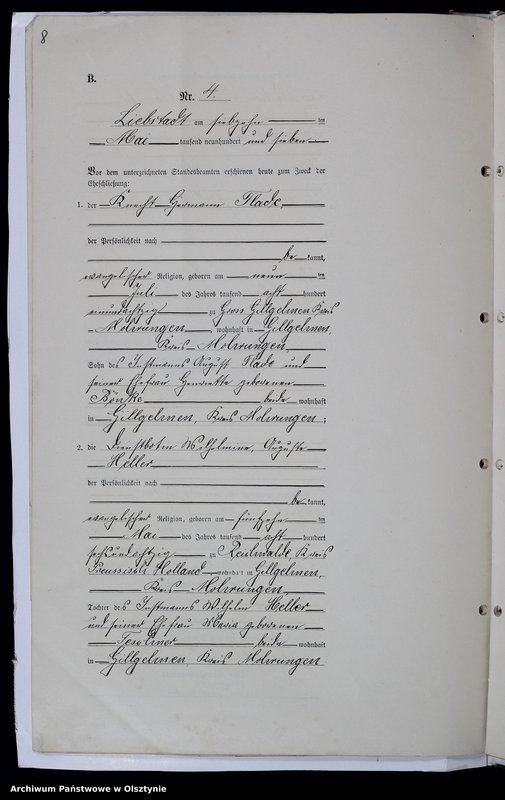 8
B.
Nr. 4.
Liebstadt am siebzehn ten
Mai tausend neunhundert und sieben
Vor dem unterzeichneten Standesbeamten erschienen heute zum Zweck der
Eheschließung:
1. der Knecht Hermann Flade,
der Persönlichkeit nach
be kannt,
evangelischer Religion, geboren am neun ten
Juli des Jahres tausend acht hundert
einundachtzig zu Gross Gillgehnen Kreis
Mohrungen, wohnhaft in Gillgehnen,
Kreis Mohrungen,
Sohn des Instmanns August Flade und
seiner Ehefrau Henriette geborenen
Bönke beide wohnhaft
in Gillgehnen, Kreis Mohrungen;
2. die Dienstbotin Wilhelmine, Auguste
Heller
der Persönlichkeit nach
be kannt,
evangelischer Religion, geboren am fünfzehn ten
Mai des Jahres tausend acht hundert
sechsundachtzig zu Reichwalde, Kreis
Preussisch Holland, wohnhaft in Gillgehnen,
Kreis Mohrungen,
Tochter des Instmanns Wilhelm Heller
und seiner Ehefrau Maria geborenen
beide wohnhaft
in Gillgehnen, Kreis Mohrungen
Archiwum Państwowe w Olsztynie